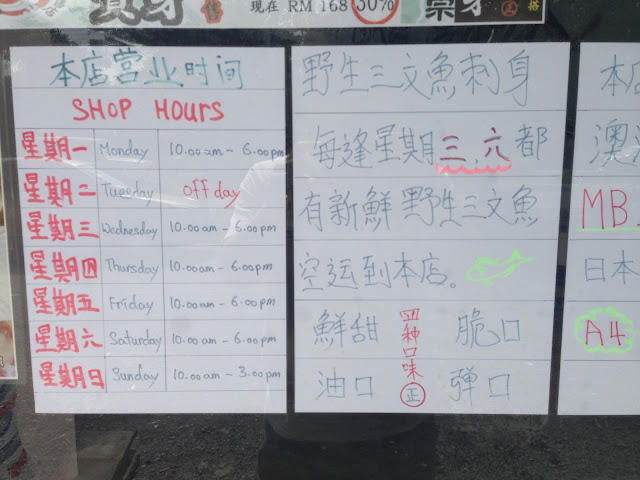 現在 RM 168 30%
售
搭
本店营业时间
SHOP HOURS
星期一 Monday 10.00am - 6.00pm
星期二 Tuesday off day
星期三 Wednesday 10.00am - 6.00pm
星期四 Thursday 10.00am - 6.00pm
星期五 Friday 10.00am - 6.00pm
星期六 Saturday 10.00am - 6.00pm
星期日 Sunday 10.00am - 3.00pm
野生三文魚刺身
每逢星期三、六都
有新鮮野生三文魚
空运到本店。
鮮甜 脆口
四种口味正
油口 弹口
本店
澳
MB
日本
A4